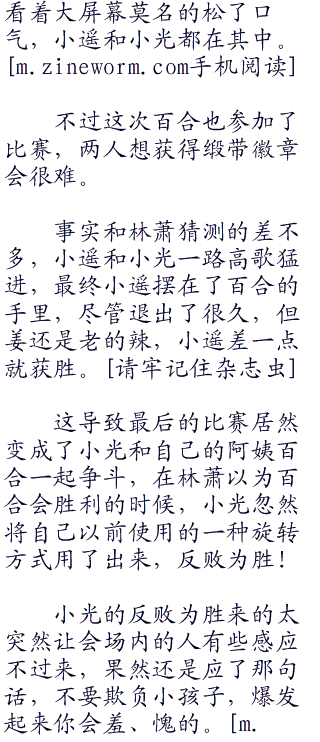 看着大屏幕莫名的松了口
气，小遥和小光都在其中。
[m.zineworm.com手机阅读]
不过这次百合也参加了
比赛，两人想获得缎带徽章
会很难。
事实和林萧猜测的差不
多，小遥和小光一路高歌猛
进，最终小遥摆在了百合的
手里，尽管退出了很久，但
姜还是老的辣，小遥差一点
就获胜。[请牢记住杂志虫]
这导致最后的比赛居然
变成了小光和自己的阿姨百
合一起争斗，在林萧以为百
合会胜利的时候，小光忽然
将自己以前使用的一种旋转
方式用了出来，反败为胜！
小光的反败为胜来的太
突然让会场内的人有些感应
不过来，果然还是应了那句
话，不要欺负小孩子，爆发
起来你会羞、愧的。[m.